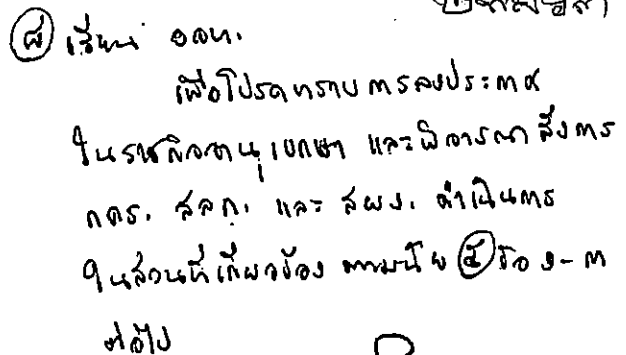 ๘ เรียน อดท.
เพื่อโปรดทราบการลงประกาศ
ในราชกิจจานุเบกษา และพิจารณาสั่งการ
กคร. สลก. และ สผง. ดำเนินการ
ในส่วนที่เกี่ยวข้อง ตามนัย ๕ ข้อ ๑-๓
ต่อไป